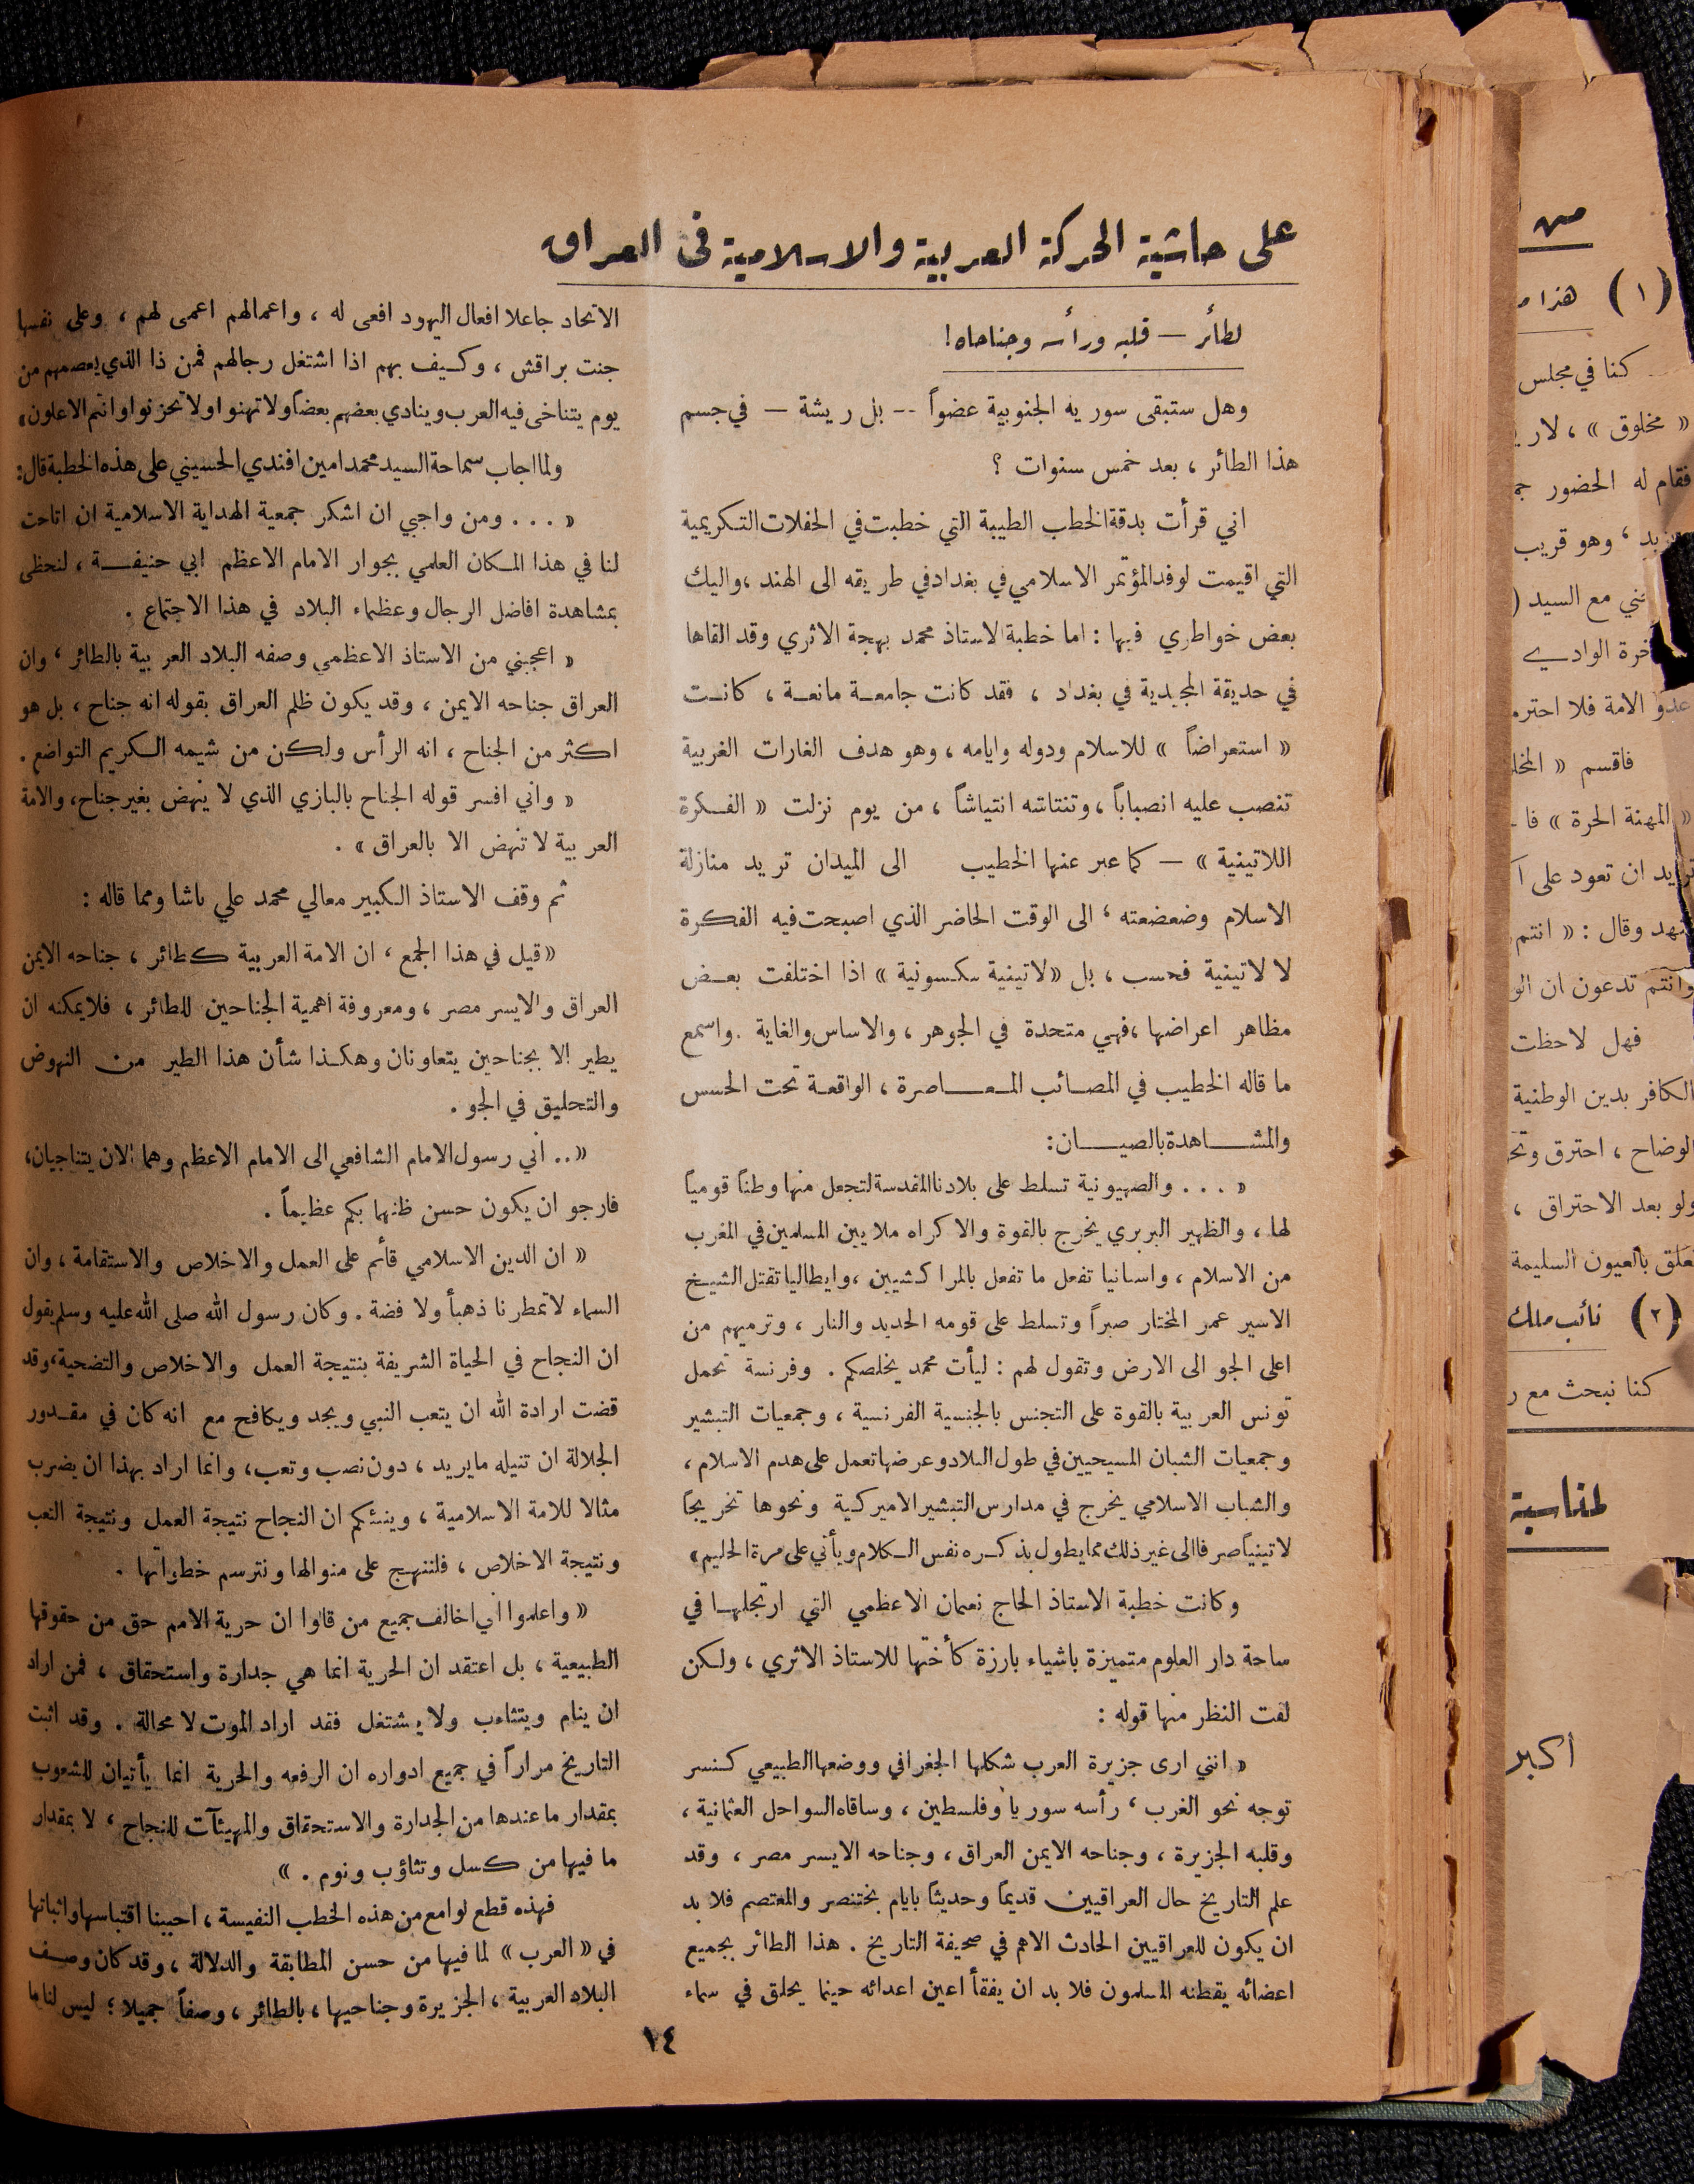 على حاشية الحركة العربية والاسلامية في العراق
لطائر — قلبه ورأسه وجناحاه!
وهل ستبقى سوريه الجنوبية عضواً -- بل ريشة — في جسم
هذا الطائر ، بعد خمس سنوات ؟
اني قرأت بدقة الخطب الطيبة التي خطبت في الحفلات التكريمية
التي اقيمت لوفد المؤتمر الاسلامي في بغداد في طريقه الى الهند ، واليك
بعض خواطري فيها : اما خطبة الاستاذ محمد بهجة الاثري وقد القاها
في حديقة المجيدية في بغداد ، فقد كانت جامعة مانعة ، كانت
« استعراضاً » للاسلام ودوله وايامه ، وهو هدف الغارات الغربية
تنصب عليه انصباباً ، وتنتاشه انتياشاً ، من يوم نزلت « الفكرة
اللاتينية » — كما عبر عنها الخطيب الى الميدان تريد منازلة
الاسلام وضعضعته ، الى الوقت الحاضر الذي اصبحت فيه الفكرة
لا لاتينية فحسب ، بل «لاتينية سكسونية » اذا اختلفت بعض
مظاهر اعراضها ، فهي متحدة في الجوهر ، والاساس والغاية . واسمع
ما قاله الخطيب في المصائب المعاصرة ، الواقعة تحت الحس
والمشاهدة بالعيان :
« . . . والصهيونية تسلط على بلادنا المقدسة لتجعل منها وطناً قومياً
لها ، والظهير البربري يخرج بالقوة والاكراه ملايين المسلمين في المغرب
من الاسلام ، واسبانيا تفعل ما تفعل بالمراكشيين ، وايطاليا تقتل الشيخ
الاسير عمر المختار صبراً وتسلط على قومه الحديد والنار ، وترميهم من
اعلى الجو الى الارض وتقول لهم : ليأت محمد يخلصكم . وفرنسة تحمل
تونس العربية بالقوة على التجنس بالجنسية الفرنسية ، وجمعيات التبشير
وجمعيات الشبان المسيحيين في طول البلاد وعرضها تعمل على هدم الاسلام ،
والشباب الاسلامي يخرج في مدارس التبشير الاميركية ونحوها تخريجاً
لاتينياً صرفا الى غير ذلك مما يطول بذكره نفس الكلام ويأتي على مرة الحليم »
وكانت خطبة الاستاذ الحاج نعمان الاعظمي التي ارتجلها في
ساحة دار العلوم متميزة باشياء بارزة كأختها للاستاذ الاثري ، ولكن
لفت النظر منها قوله :
« انني ارى جزيرة العرب شكلها الجغرافي ووضعها الطبيعي كنسر
توجه نحو الغرب ، رأسه سوريا وفلسطين ، وساقاه السواحل العثمانية ،
وقلبه الجزيرة ، وجناحه الايمن العراق ، وجناحه الايسر مصر ، وقد
علم التاريخ حال العراقيين قديماً وحديثاً بايام بختنصر والمعتصم فلا بد
ان يكون للعراقيين الحادث الاهم في صحيفة التاريخ . هذا الطائر بجميع
اعضائه يقطنه المسلمون فلا بد ان يفقأ اعين اعدائه حينما يحلق في سماء
الاتحاد جاعلا افعال اليهود افعى له ، واعمالهم اعمى لهم ، وعلى نفسها
جنت براقش ، وكيف بهم اذا اشتغل رجالهم فمن ذا الذي يعصمهم من
يوم يتناخى فيه العرب وينادي بعضهم بعضاً ولا تهنوا ولا تحزنوا وانتم الاعلون»
ولما اجاب سماحة السيد محمد امين افندي الحسيني على هذه الخطبة قال :
« . . . ومن واجبي ان اشكر جمعية الهداية الاسلامية ان اتاحت
لنا في هذا المكان العلمي بجوار الامام الاعظم ابي حنيفة ، لنحظى
بمشاهدة افاضل الرجال وعظماء البلاد في هذا الاجتماع .
« اعجبني من الاستاذ الاعظمي وصفه البلاد العربية بالطائر ، وان
العراق جناحه الايمن ، وقد يكون ظلم العراق بقوله انه جناح ، بل هو
اكثر من الجناح ، انه الرأس ولكن من شيمه الكريم التواضع .
« واني افسر قوله الجناح بالبازي الذي لا ينهض بغير جناح، والامة
العربية لا تنهض الا بالعراق » .
ثم وقف الاستاذ الكبير معالي محمد علي باشا ومما قاله :
«قيل في هذا الجمع ، ان الامة العربية كطائر ، جناحه الايمن
العراق والايسر مصر ، ومعروفة اهمية الجناحين للطائر ، فلا يمكنه ان
يطير الا بجناحين يتعاونان وهكذا شأن هذا الطير من النهوض
والتحليق في الجو .
« . . اني رسول الامام الشافعي الى الامام الاعظم وهما الان يتناجيان،
فارجو ان يكون حسن ظنهما بكم عظيماً .
« ان الدين الاسلامي قائم على العمل والاخلاص والاستقامة ، وان
السماء لا تمطرنا ذهباً ولا فضة . وكان رسول الله صلى الله عليه وسلم يقول
ان النجاح في الحياة الشريفة بنتيجة العمل والاخلاص والتضحية، وقد
قضت ارادة الله ان يتعب النبي ويجد ويكافح مع انه كان في مقدور
الجلالة ان تنيله ما يريد ، دون نصب وتعب، وانما اراد بهذا ان يضرب
مثالا للامة الاسلامية ، وينبئكم ان النجاح نتيجة العمل ونتيجة التعب
ونتيجة الاخلاص ، فلننهج على منوالها ونترسم خطواتها .
« واعلموا اني اخالف جميع من قالوا ان حرية الامم حق من حقوقها
الطبيعية ، بل اعتقد ان الحرية انما هي جدارة واستحقاق ، فمن اراد
ان ينام ويتثاءب ولا يشتغل فقد اراد الموت لا محالة . وقد اثبت
التاريخ مراراً في جميع ادواره ان الرفعه والحرية انما يأتيان للشعوب
بمقدار ما عندها من الجدارة والاستحقاق والمهيئآت للنجاح ، لا بمقدار
ما فيها من كسل وتثاؤب ونوم . »
فهذه قطع لوامع من هذه الخطب النفيسة ، احببنا اقتباسها واثباتها
في « العرب » لما فيها من حسن المطابقة والدلالة ، وقد كان وصف
البلاد العربية ، الجزيرة وجناحيها ، بالطائر ، وصفاً جميلا ؛ ليس لنا ما
١٤
من
(١) هذا
كنا في مجلس
« مخلوق » ، لا
فقام له الحضور
، وهو قريب
مع السيد (
الوادي
عدو الامة فلا
فاقسم «
« المهنة الحرة »
تريد ان تعود على
وقال : « انتم
وانتم تدعون ان
فهل لاحظت
الكافر بدين الوطنية
الوضاح ، احترق
ولو بعد الاحتراق ،
بالعيون السليمة
(٢) نائب ملك
كنا نبحث مع
لمناسبة
أكبر